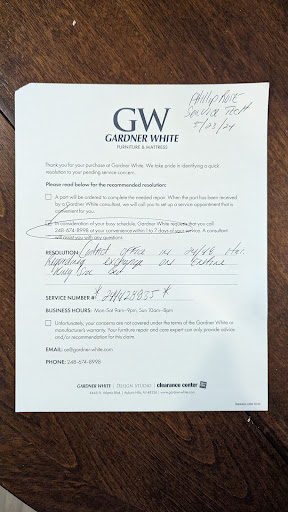 Phillip
Service Tech
5/23/24
GW
GARDNER WHITE
FURNITURE & MATTRESS
Thank you for your purchase at Gardner White. We take pride in identifying a quick
resolution to your pending service concern.
Please read below for the recommended resolution:
A part will be ordered to complete the needed repair. When the part has been received
by a Gardner White consultant, we will call you to set up a service appointment that is
convenient for you.
In consideration of your busy schedule, Gardner White requests that you call
248-674-8998 at your convenience within 1 to 7 days of your service. A consultant
will assist you with any questions.
RESOLUTION: Contact office in 24/48 Hrs.
Regarding Exchange on Entire
King Size Bed
SERVICE NUMBER#:
BUSINESS HOURS: Mon-Sat 9am-9pm, Sun 10am-8pm
Unfortunately, your concerns are not covered under the terms of the Gardner White or
manufacturer's warranty. Your furniture repair and care expert can only provide advice
and/or recommendation for this claim.
EMAIL: cs@gardner-white.com
PHONE: 248-674-8998
GARDNER WHITE | DESIGN STUDIO | clearance center
www.gardner-white.com